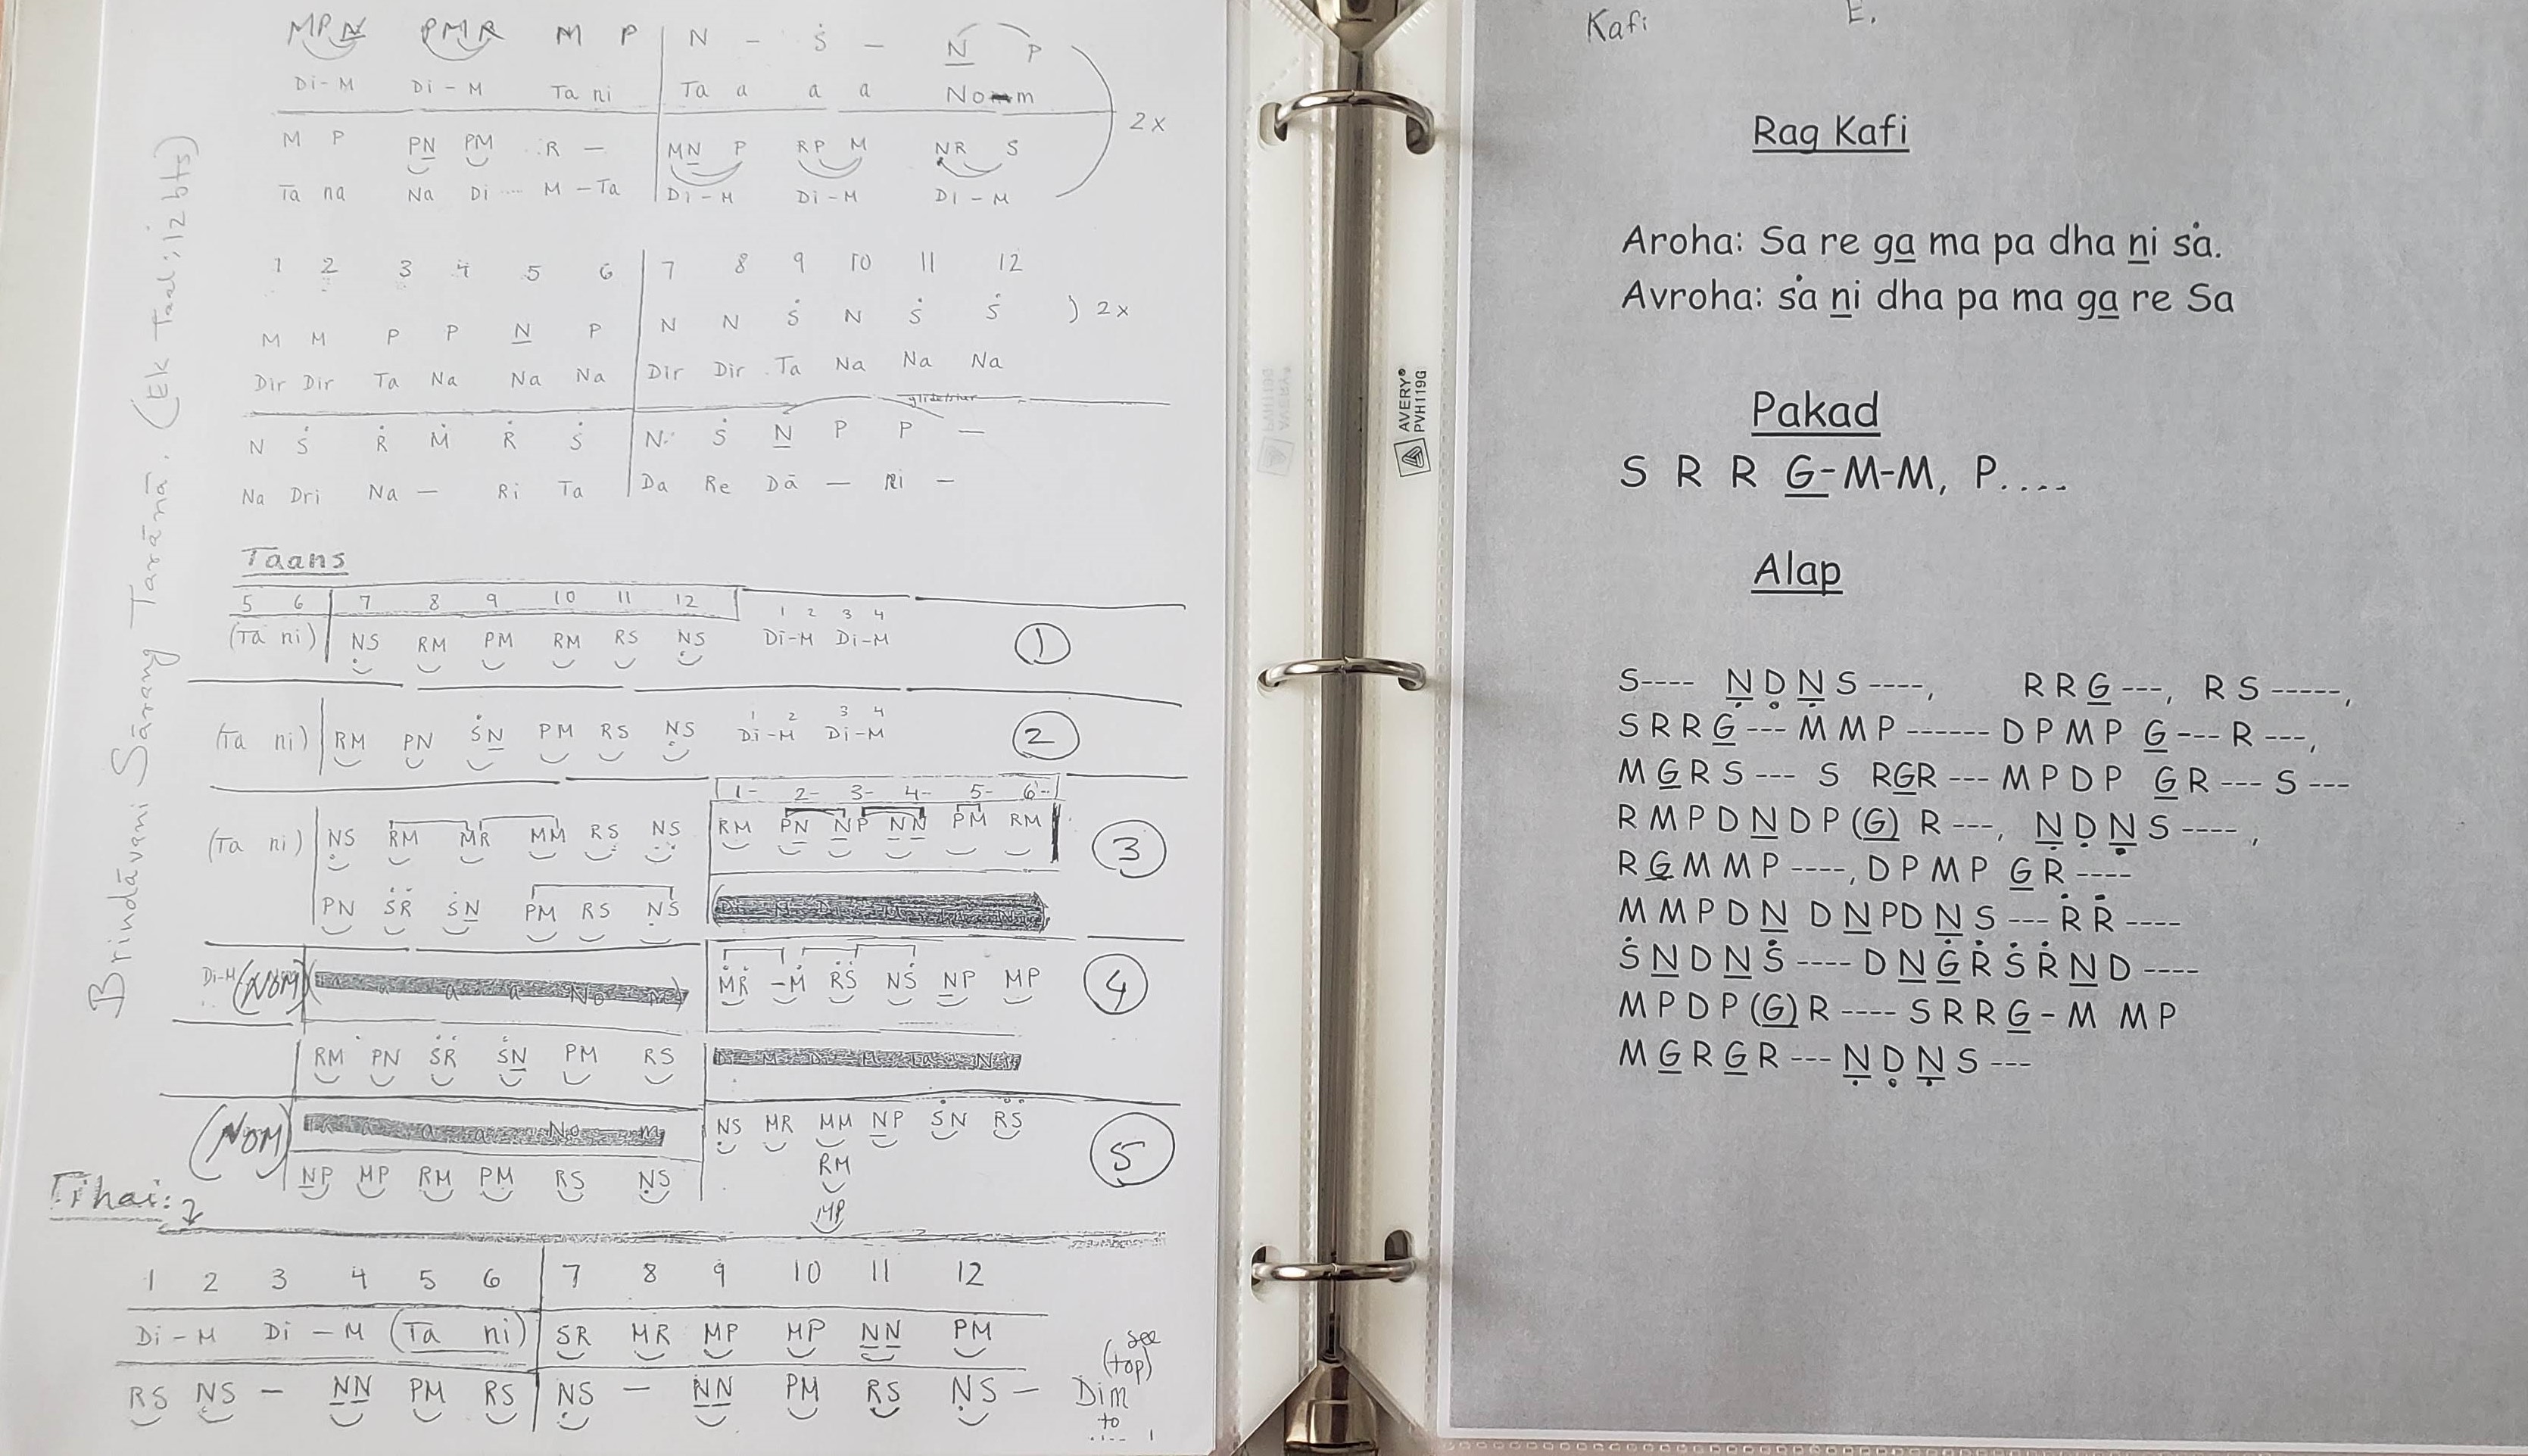 Brindāvani Sārang Tarānā. (Ek Taal; 12 bts)
MPN̲ PMR M P | N – Ṡ – N̲ P
Di-M Di-M Ta ni | Ta a a a Nom
2x
M P PN̲ PM R – | MN̲ P RP M ṆR S
Ta na Na Di .... M – Ta | Di-M Di-M Di-M
1 2 3 4 5 6 | 7 8 9 10 11 12
M M P P N̲ P | N N Ṡ N Ṡ Ṡ ) 2x
Dir Dir Ta Na Na Na | Dir Dir Ta Na Na Na
N Ṡ Ṙ Ṁ Ṙ Ṡ | N Ṡ N̲ P P —
Na Dri Na — Ri Ta | Da Re Dā — Ri –
Taans
5 6 | 7 8 9 10 11 12 | 1 2 3 4
(Ta ni) | ṆS RM PM RM RS ṆS Di-M Di-M ①
1 2 3 4
(Ta ni) | RM PN ṠN̲ PM RS ṆS Di-M Di-M ②
1- 2- 3- 4- 5- 6-
(Ta ni) | ṆS RM MR MM RS ṆS | RM PN̲ N̲P N̲N̲ PM RM ③
PN ṠṘ ṠN̲ PM RS ṆS
Di-M (NOM) | a a a No m) | ṀṘ -Ṁ ṘṠ NṠ N̲P MP ④
RM PN ṠṘ ṠN̲ PM RS
(NOM) a a a No m | ṆS MR MM N̲P ṠN ṘṠ ⑤
RM
N̲P MP RM PM RS ṆS
MP
Tihai:
1 2 3 4 5 6 | 7 8 9 10 11 12
Di-M Di-M (Ta ni) | SR MR MP MP N̲N̲ PM
see (top)
RS ṆS – N̲N̲ PM RS | ṆS – N̲N̲ PM RS ṆS – Dim
to
AVERY®
PVH119G
Kafi E.
Rag Kafi
Aroha: Sa re ga̲ ma pa dha n̲i ṡa.
Avroha: ṡa n̲i dha pa ma ga̲ re Sa
Pakad
S R R G̲-M-M, P....
Alap
S---- Ṇ̲ Ḍ Ṇ̲ S ----, R R G̲ ---, R S -----,
S R R G̲ --- M M P ------ D P M P G̲ --- R ---,
M G̲ R S --- S R G̲ R --- M P D P G̲ R --- S ---
R M P D N̲ D P (G̲) R ---, Ṇ̲ Ḍ Ṇ̲ S ---- ,
R G̲ M M P ----, D P M P G̲ R ----
M M P D N̲ D N̲ P D N̲ S --- Ṙ Ṙ ----
Ṡ N̲ D N̲ Ṡ ---- D N̲ Ġ̲ Ṙ Ṡ Ṙ N̲ D ----
M P D P (G̲) R ---- S R R G̲ - M M P
M G̲ R G̲ R --- Ṇ̲ Ḍ Ṇ̲ S ---